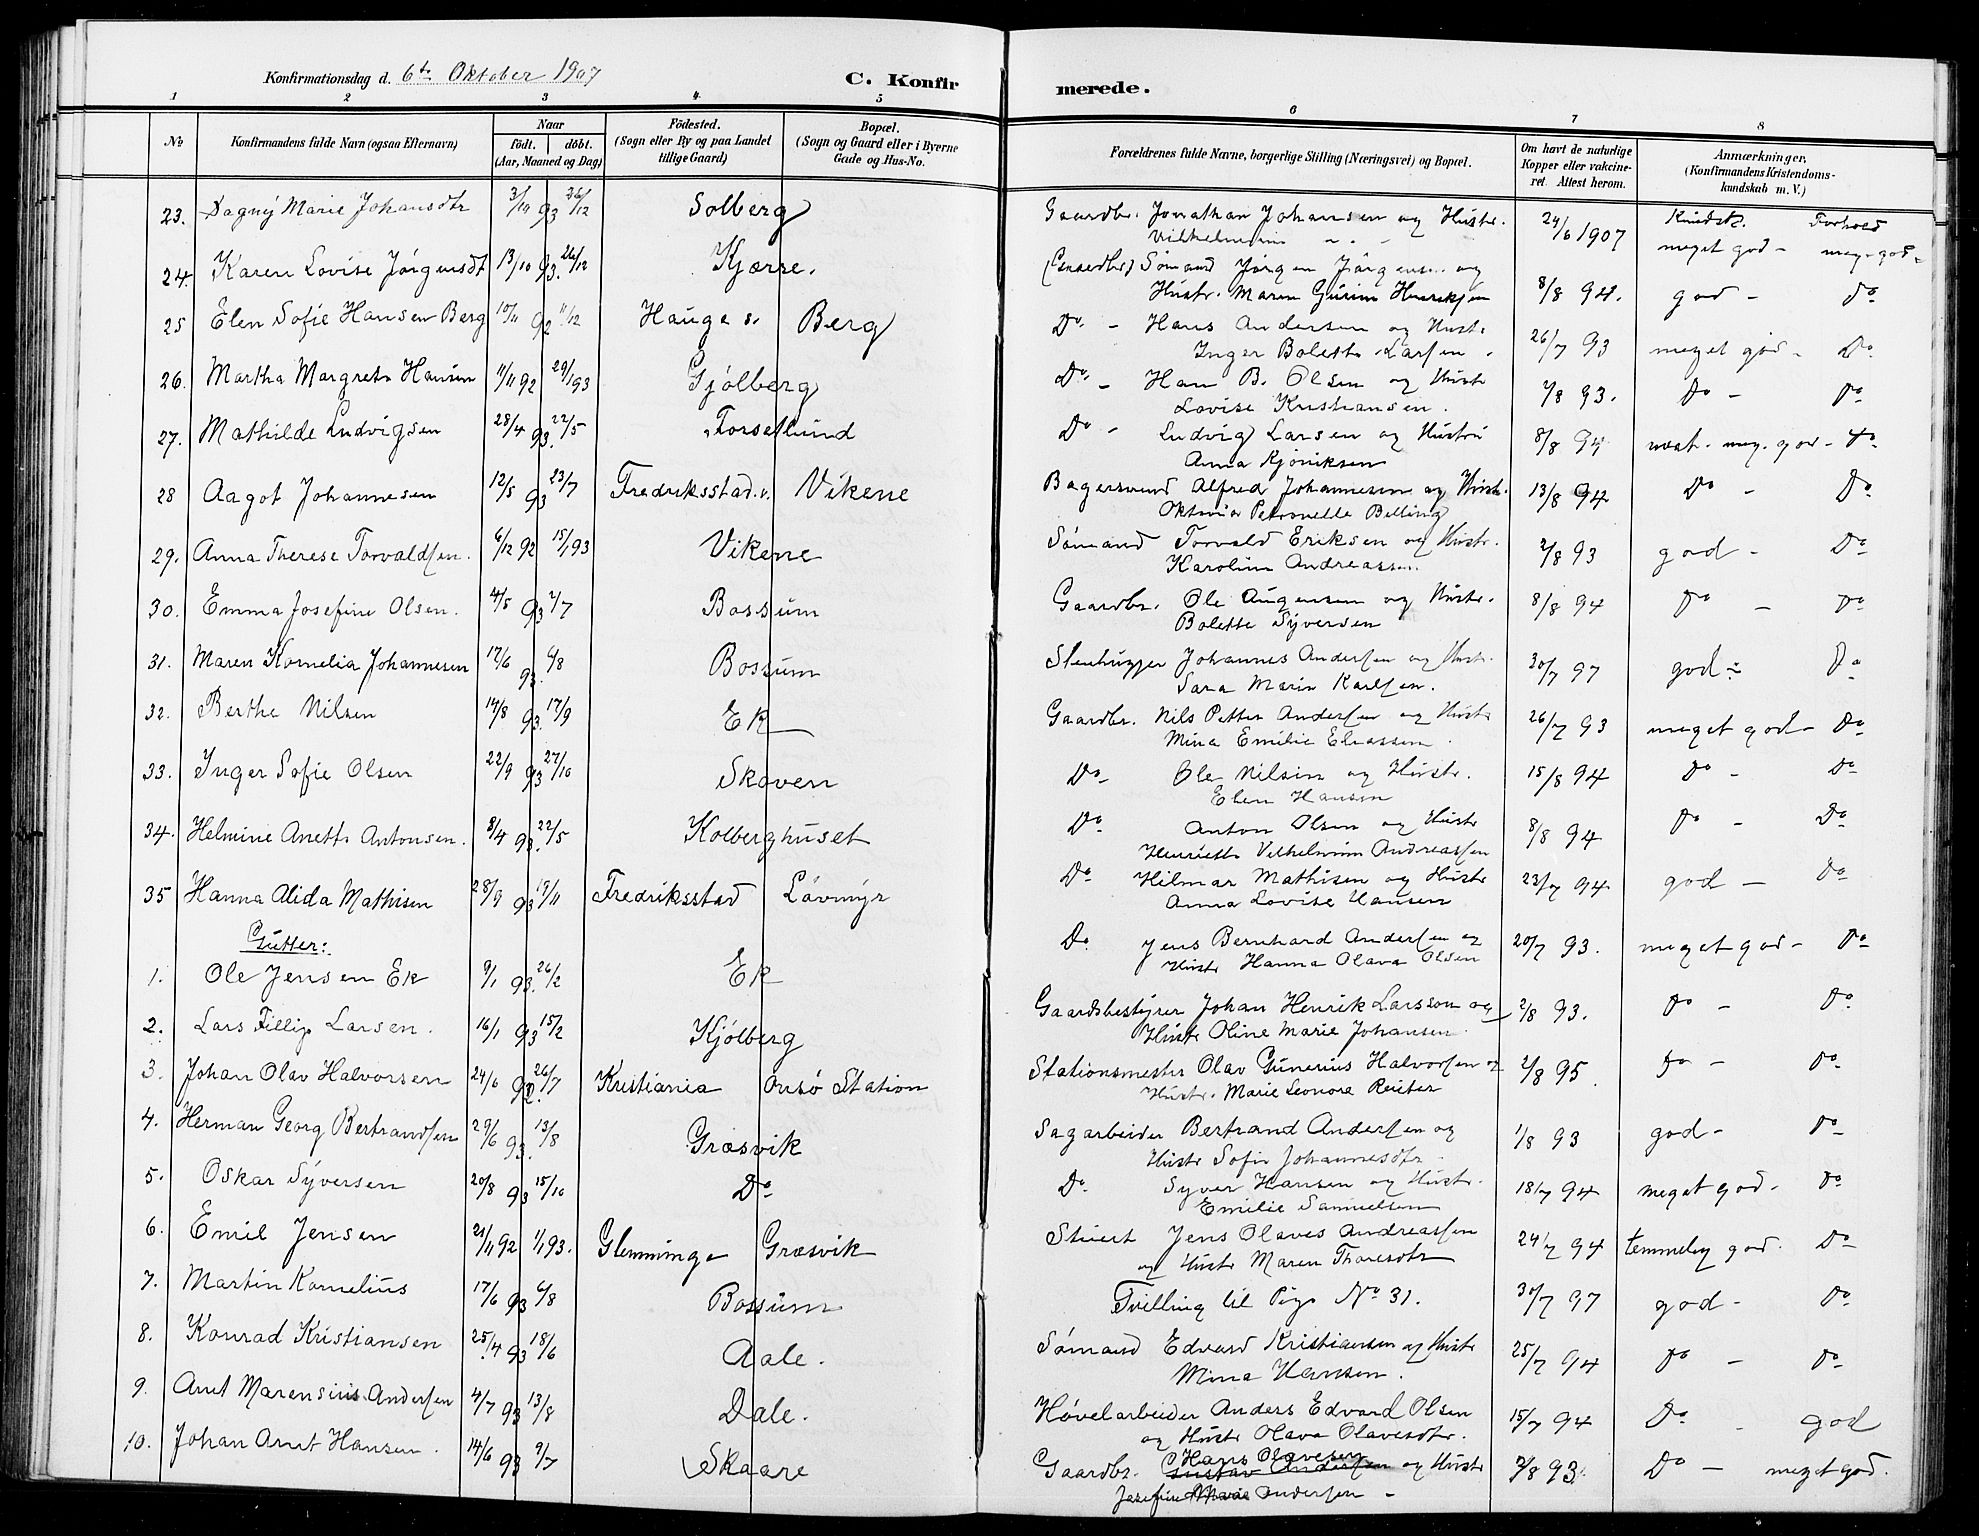 Konfirmationsdag d. 6te Oktober 1907 C. Konfirmerede.
1 2 3 4 5 6 7 8
No Konfirmandens fulde Navn (ogsaa Efternavn) Naar født. døbt. (Aar, Maaned og Dag) Födested. (Sogn eller By og paa Landet tillige Gaard) Bopæl. (Sogn og Gaard eller i Byerne Gade og Hus-No. Forældrenes fulde Navne, borgerlige Stilling (Næringsvei) og Bopæl. Om havt de naturlige Kopper eller vakcineret. Attest herom. Anmærkninger, (Konfirmandens Kristendomskundskab m. V.)
23. Dagny Marie Johansdtr 93 26/12 Solberg Gaardbr. Jonathan Johansen og Hustr. 24/6 1907 Kundsk. Forhold
meget god - meg. god -
24. Karen Lovise Jørgensdt 13/10 93. 26/12 Kjærre. Sømand Jørgen og
Hustr. Maren Henriksen 8/8 94. god - Do
25 Elen Sofie Hansen Berg 10/11 92 11/12 Hauge s. Berg Do - Hans Andersen og Hustr
Inger Bolette Larsen. 26/7 93 meget god - Do
26. Martha Margrete Hansen 11/11 92 29/1 93 Gjølberg Do - Han B. Olsen og Hustr
Lovise Kristiansen. 2/8 93. Do - Do
27. Mathilde Ludvigsen 28/4 93. 22/5 Forsetlund Do - Ludvig Larsen og Hustru
Anna Kjøniksen 8/8 94 næst. meg. god - Do
28 Aagot Johannesen 12/5 93 23/7 Fredriksstad Vikene Bagersvend Alfred Johannesen og Hustr.
Oktavia Petronelle Belling 13/8 94 Do - Do
29. Anna Therese Torvaldsen. 6/12 92 15/1 93 Vikene Sømand Torvald Eriksen og Hustr.
Karoline Andreassen. 2/8 93 god - Do
30. Emma Josefine Olsen. 4/5 93 2/7 Bossum Gaardbr. Ole Augensen og Hustr.
Bolette Syversen 8/8 94 Do - Do
31. Maren Kornelia Johannesen 17/6 93. 6/8 Bossum Stenhugger Johannes Andersen og Hustr.
Sara Marie Karlsen. 30/7 97 god - Do
32. Berthe Nilsen 14/8 93. 17/9 Ek Gaardbr. Nils Petter Andersen og Hustr
Mina Emilie Eliassen. 26/7 93 meget god - Do
33. Inger Sofie Olsen 22/9 93 27/10 Skoven Do - Ole Nilsen og Hustr.
Elen Hansen 15/8 94 Do - Do
34. Helmine Anette Antonsen. 8/4 93. 22/5 Kolberghuset Do Anton Olsen og Hustr
Henriette Vilhelmine Andreassen 8/8 94 Do - Do
35 Hanna Alida Mathisen 28/9 93 19/11 Fredriksstad Løvmyr Do Hilmar Mathisen og Hustr
Anna Lovise Hansen 23/7 94 god - Do
Gutter:
1. Ole Jensen Ek 9/1 93. 26/2 Ek Do Jens Bernhard Andersen og
Hustr Hanna Olava Olsen 20/7 93. meget god - Do
2. Lars Fillip Larsen. 16/1 93 15/2 Kjølberg Gaardsbestyrer Johan Henrik Larsson og
Hustr Oline Marie Johansen. 2/8 93. Do - Do
3. Johan Olav Halvorsen 24/6 92. 26/7 Kristiania Onsø Station Stationsmester Olav Gunerius Halvorsen og
Hustr. Marie Leonora Reiter 2/8 95. Do - Do
4. Herman Georg Bertrandsen 29/6 93. 13/8 Græsvik Sagarbeider Bertrand Andersen og
Hustr Sofie Johannesdtr. 1/8 93 god - Do
5. Oskar Syversen 20/8 93 15/10 Do Do Syver Hansen og Hustr.
Emilie Samuelsen 18/7 94 meget god. Do
6. Emil Jensen 21/11 92 1/1 93. Glemminge Græsvik Stuert Jens Olaves Andreassen
og Hustr Maren Thoresdtr 24/7 94 temmelig god. Do
7. Martin Kornelius 17/6 93 6/8 Bossum Tvilling til Pige No 31. 30/7 97 god - Do
8. Konrad Kristiansen 25/4 93 18/6 Aale. Sømand Edvard Kristiansen og Hustr
Mina Hansen. 25/7 94 Do - Do
9. Arnt Marensius Andersen 4/7 93 13/8 Dale. Høvelarbeider Anders Edvard Olsen
og Hustr Olava Olavesdtr. 15/7 94 Do - god
10. Johan Arnt Hansen. 14/6 93 9/7 Skaare Gaardbr. Hans Olavesen Gustav Andersen og Hustr
Josefine Marie Andersen - 2/8 93. Do - meget god.